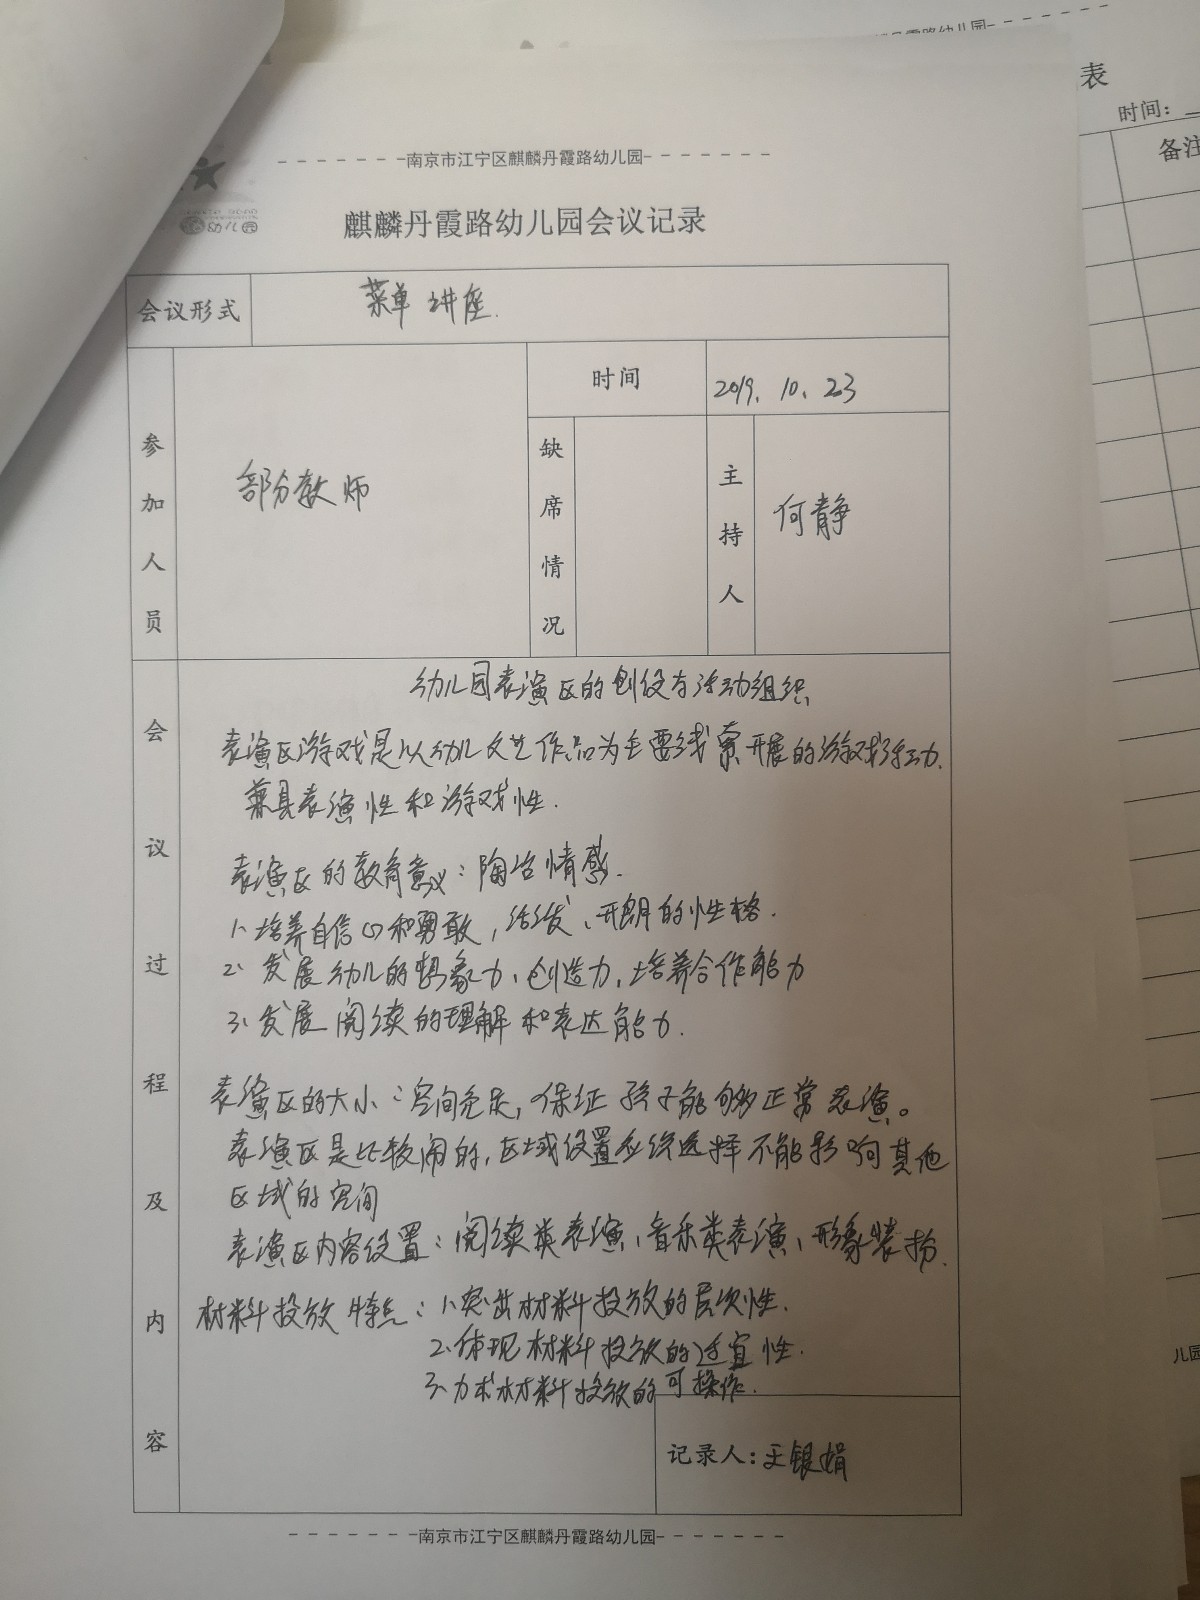 丹霞路幼儿园
表
时间：
备注
南京市江宁区麒麟丹霞路幼儿园
幼儿园
麒麟丹霞路幼儿园会议记录
会议形式 菜单讲座.
参加人员 部分教师
时间 2019. 10. 23
缺席情况
主持人 何静
会议过程及内容
幼儿园表演区的创设与活动组织
表演区游戏是以幼儿文艺作品为主要线索开展的游戏活动.
兼具表演性和游戏性.
表演区的教育意义：陶冶情感.
1、培养自信心和勇敢，活泼、开朗的性格.
2、发展幼儿的想象力、创造力，培养合作能力
3、发展阅读的理解和表达能力.
表演区的大小：空间充足，保证孩子能够正常表演。
表演区是比较闹的，区域设置应该选择不能影响其他
区域的空间
表演区内容设置：阅读类表演、音乐类表演、形象装扮.
材料投放特点：1、突出材料投放的层次性.
2、体现材料投放的适宜性.
3、力求材料投放的可操作.
记录人：王银娟
南京市江宁区麒麟丹霞路幼儿园
儿园